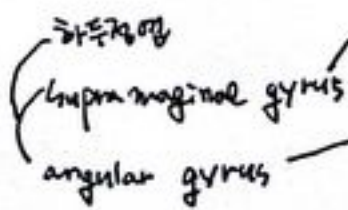 하두정엽
supramaginal gyrus
angular gyrus